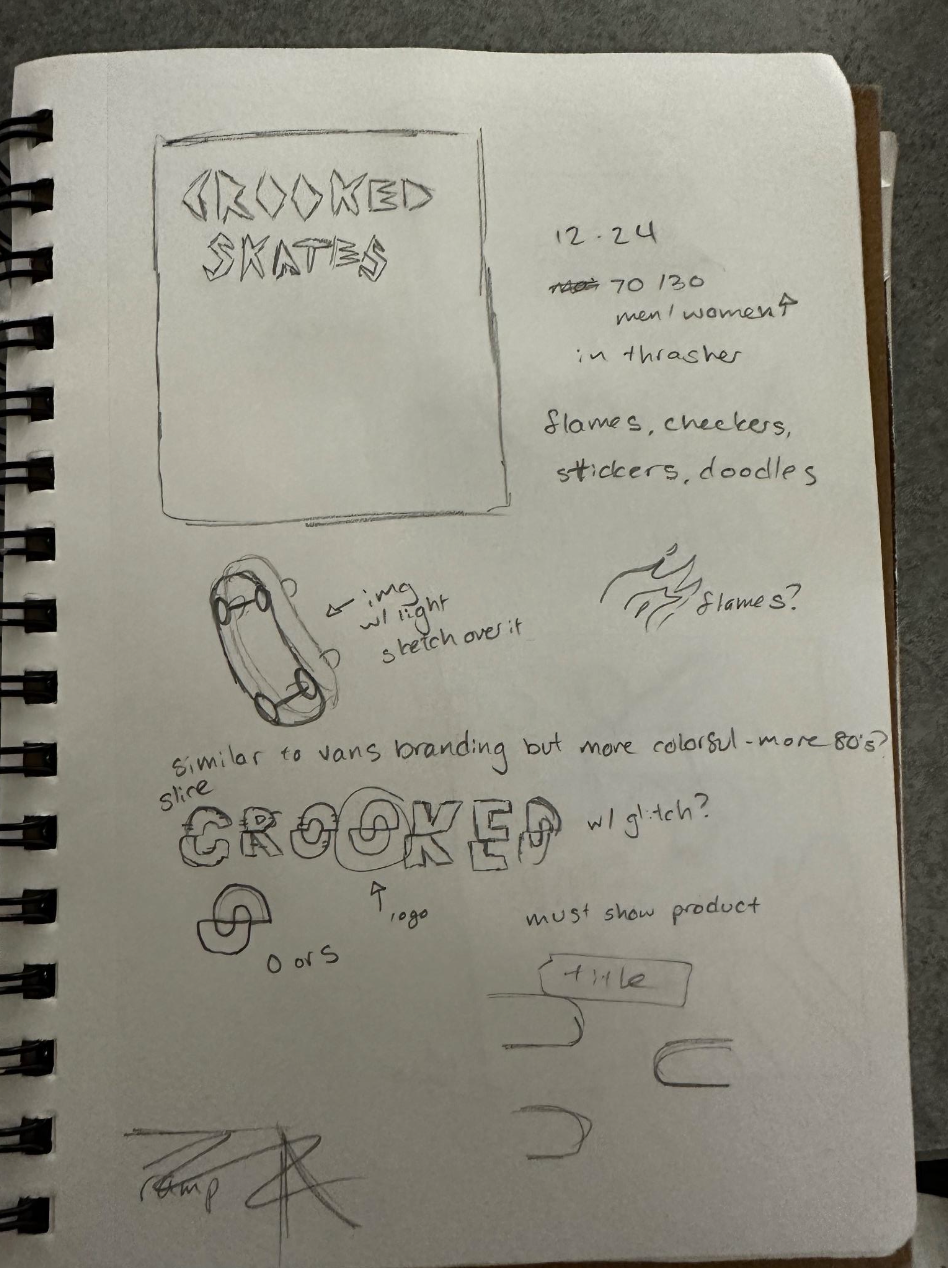 CROOKED
SKATES
12-24
70/30
men/women
in thrasher
flames, checkers,
stickers, doodles
img
w/ light
sketch over it
flames?
similar to vans branding but more colorful - more 80's?
slice
CROOKED
w/ glitch?
logo
O or S
must show product
title
ramp